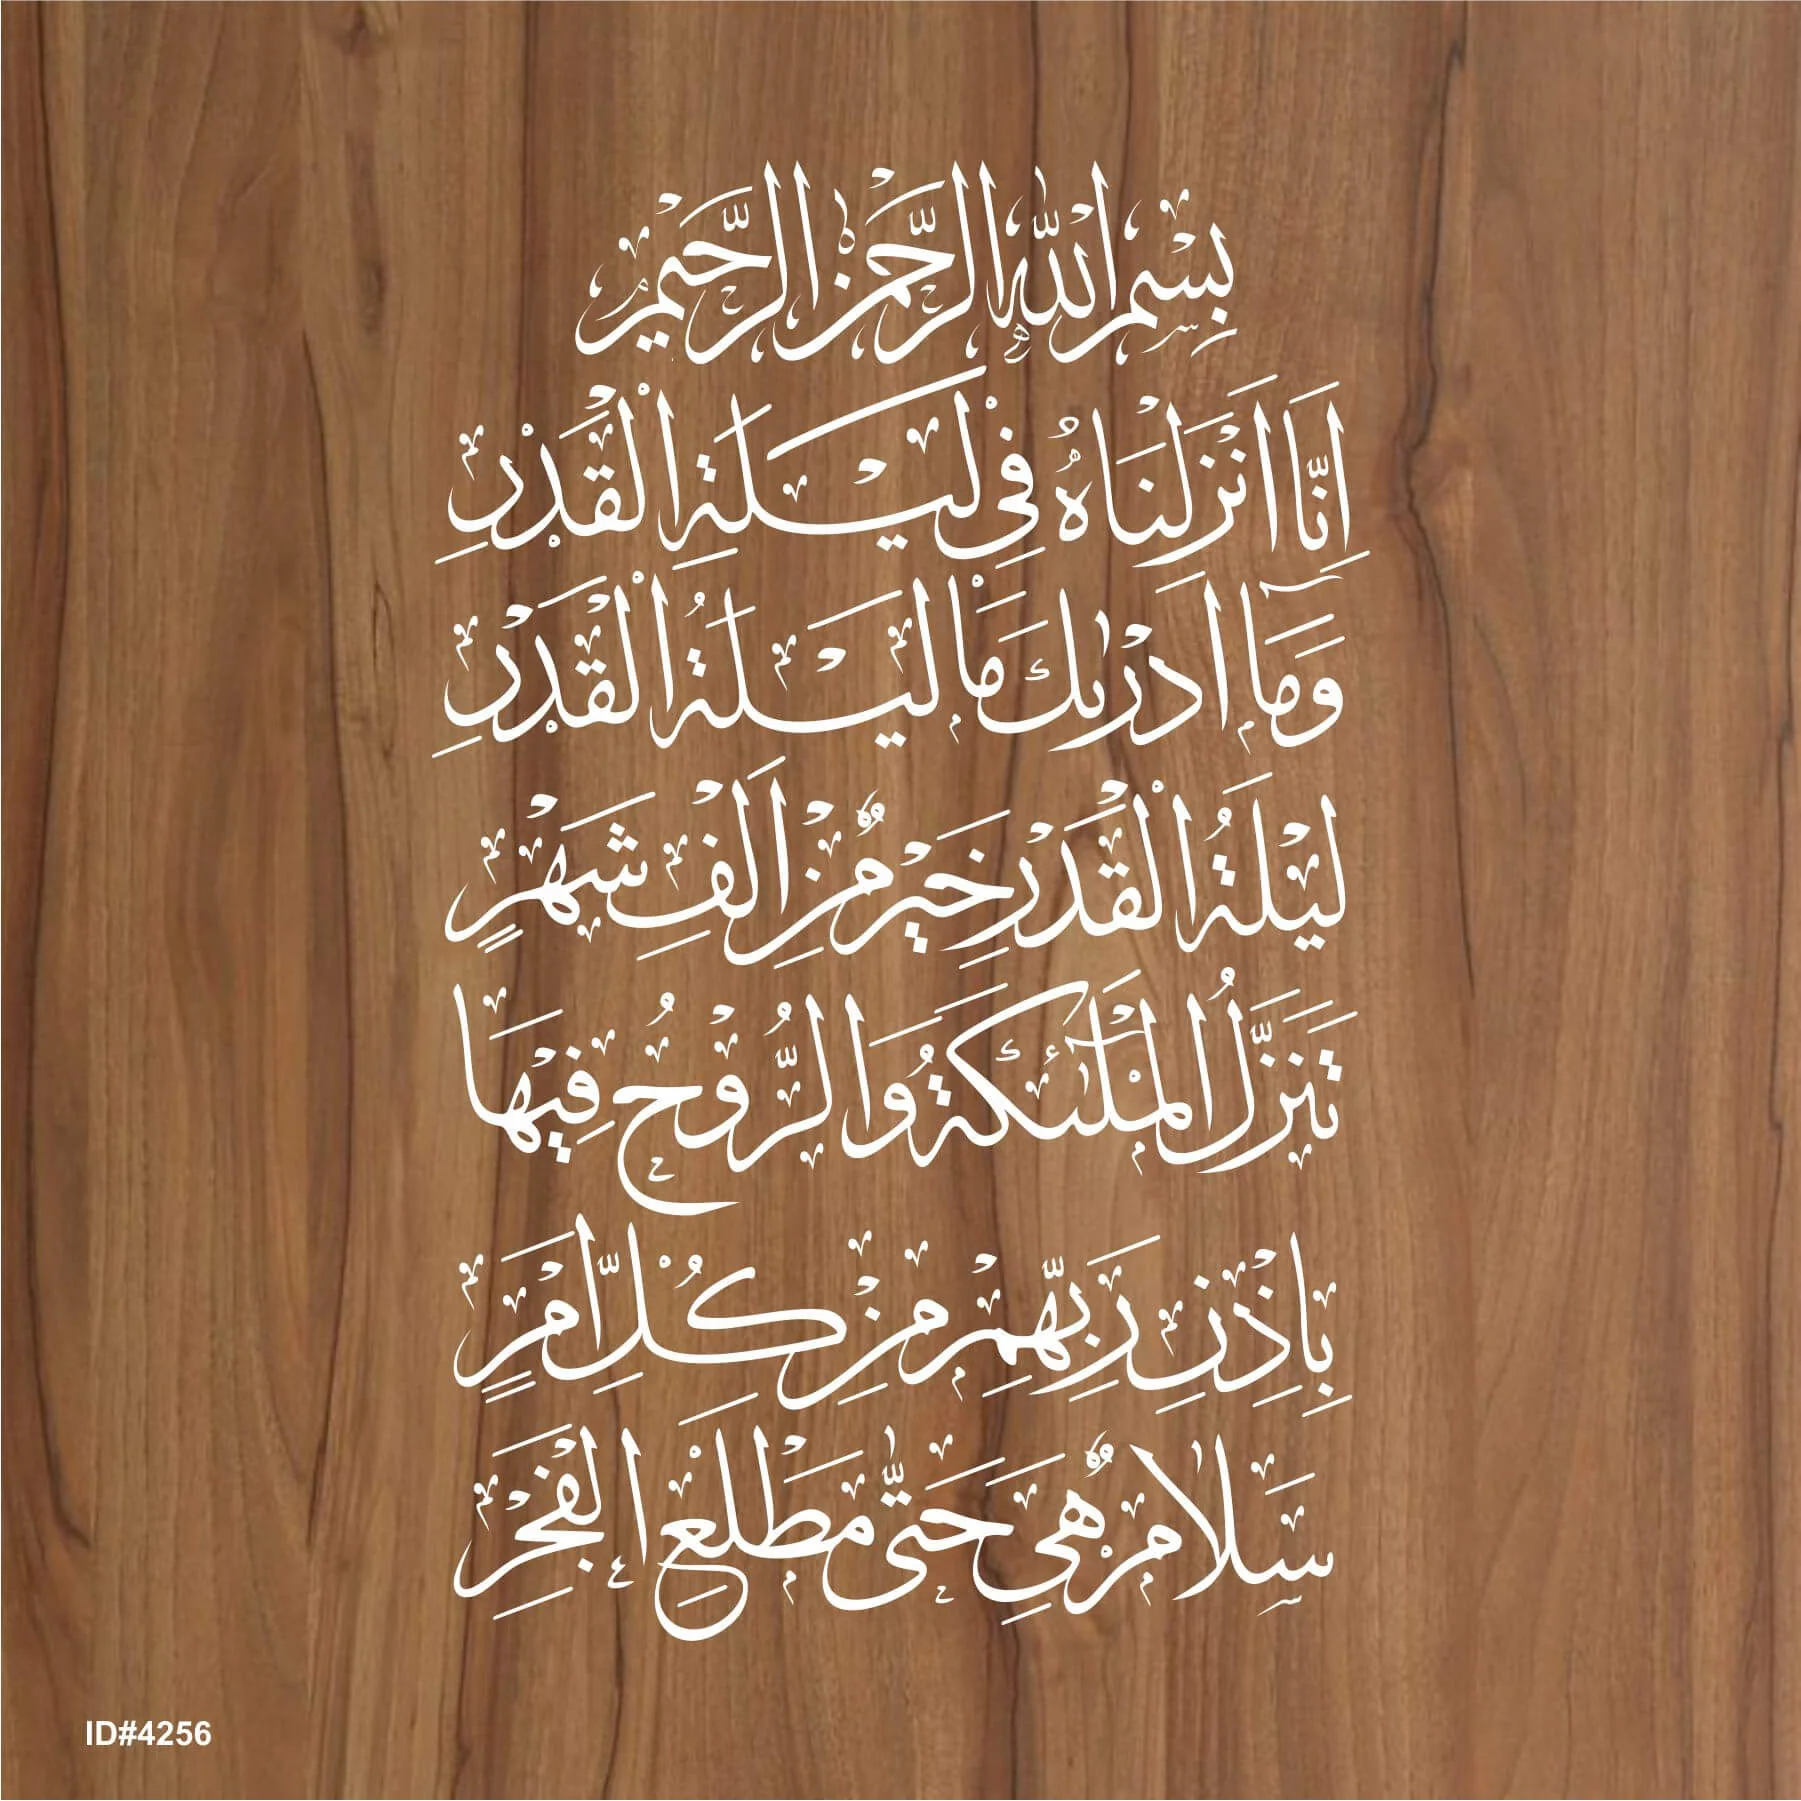 بِسْمِ اللّٰهِ الرَّحْمٰنِ الرَّحِيْمِ
اِنَّا اَنْزَلْنَاهُ فِي لَيْلَةِ الْقَدْرِ
وَمَآ اَدْرٰىكَ مَا لَيْلَةُ الْقَدْرِ
لَيْلَةُ الْقَدْرِ خَيْرٌ مِّنْ اَلْفِ شَهْرٍ
تَنَزَّلُ الْمَلٰٓئِكَةُ وَالرُّوْحُ فِيْهَا
بِاِذْنِ رَبِّهِمْ مِنْ كُلِّ اَمْرٍ
سَلَامٌ هِيَ حَتّٰى مَطْلَعِ الْفَجْرِ
ID#4256